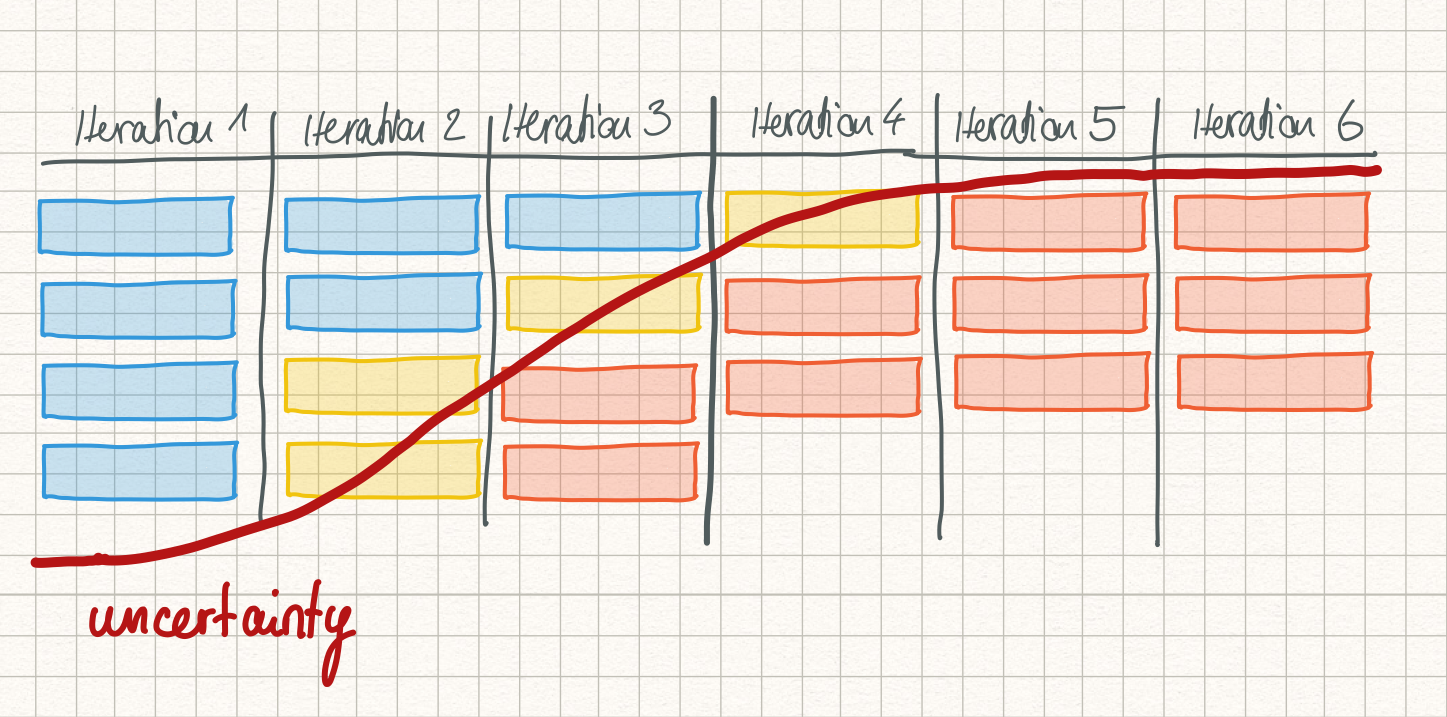 Iteration 1 Iteration 2 Iteration 3 Iteration 4 Iteration 5 Iteration 6
uncertainty